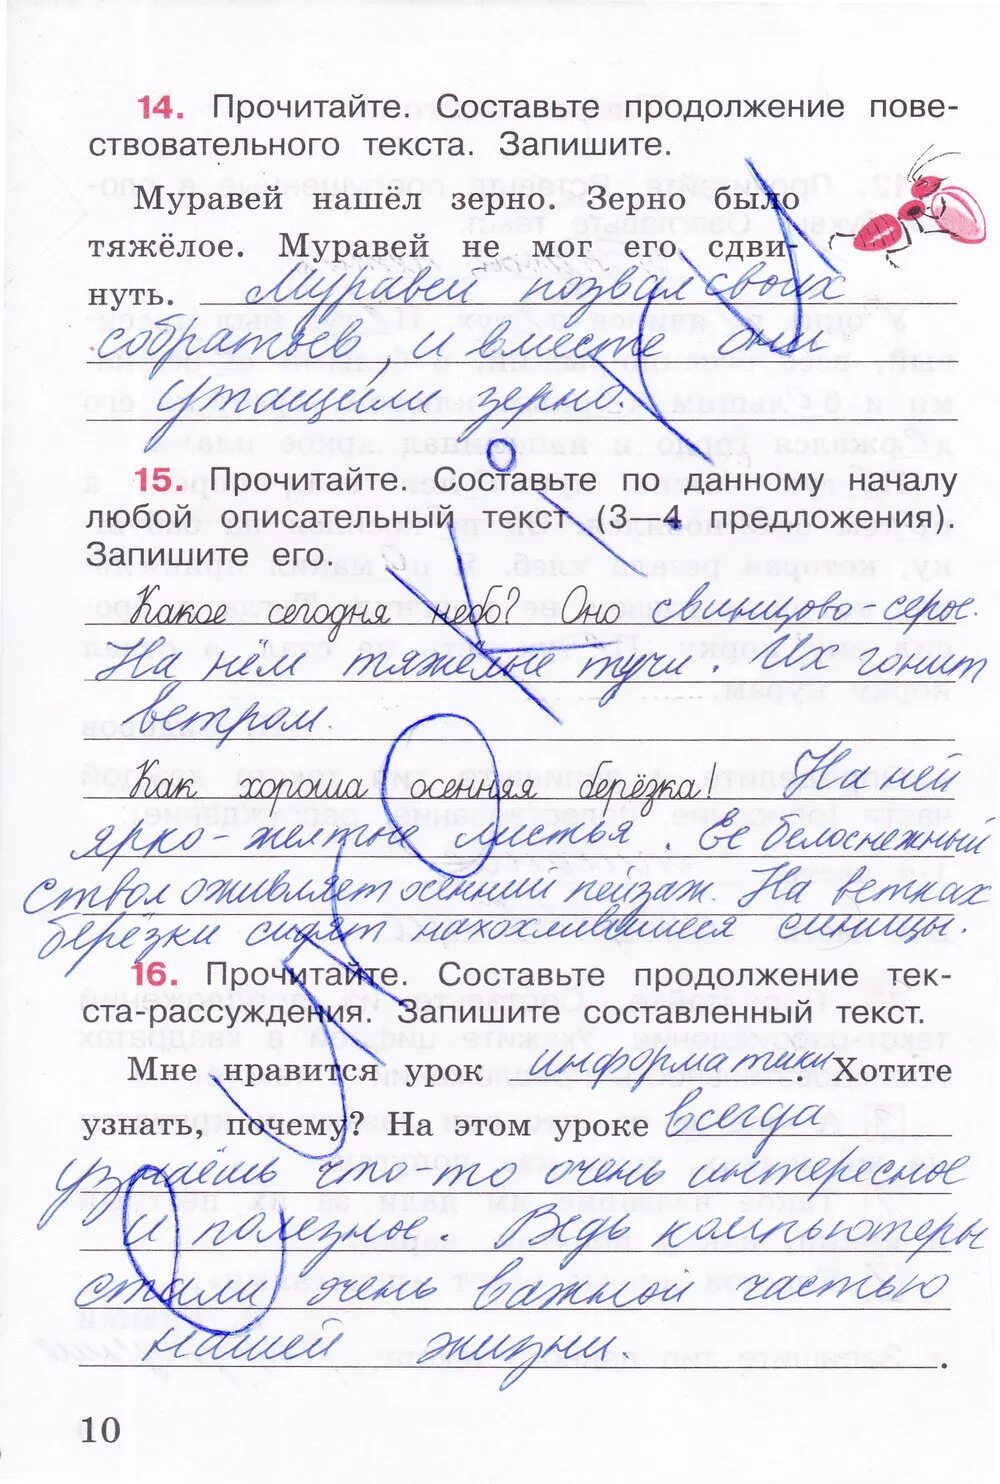 14. Прочитайте. Составьте продолжение пове-
ствовательного текста. Запишите.
Муравей нашёл зерно. Зерно было
тяжёлое. Муравей не мог его сдви-
нуть. Муравей позвал своих
собратьев, и вместе они
утащили зерно.
15. Прочитайте. Составьте по данному началу
любой описательный текст (3—4 предложения).
Запишите его.
Какое сегодня небо? Оно свинцово-серое.
На нём тяжёлые тучи. Их гонит
ветром.
Как хороша осенняя берёзка! На ней
ярко-желтые листья. Ее белоснежный
ствол оживляет осенний пейзаж. На ветках
берёзки сидят нахохлившиеся синицы.
16. Прочитайте. Составьте продолжение тек-
ста-рассуждения. Запишите составленный текст.
Мне нравится урок информатики. Хотите
узнать, почему? На этом уроке всегда
узнаёшь что-то очень интересное
и полезное. Ведь компьютеры
стали очень важной частью
нашей жизни.
10